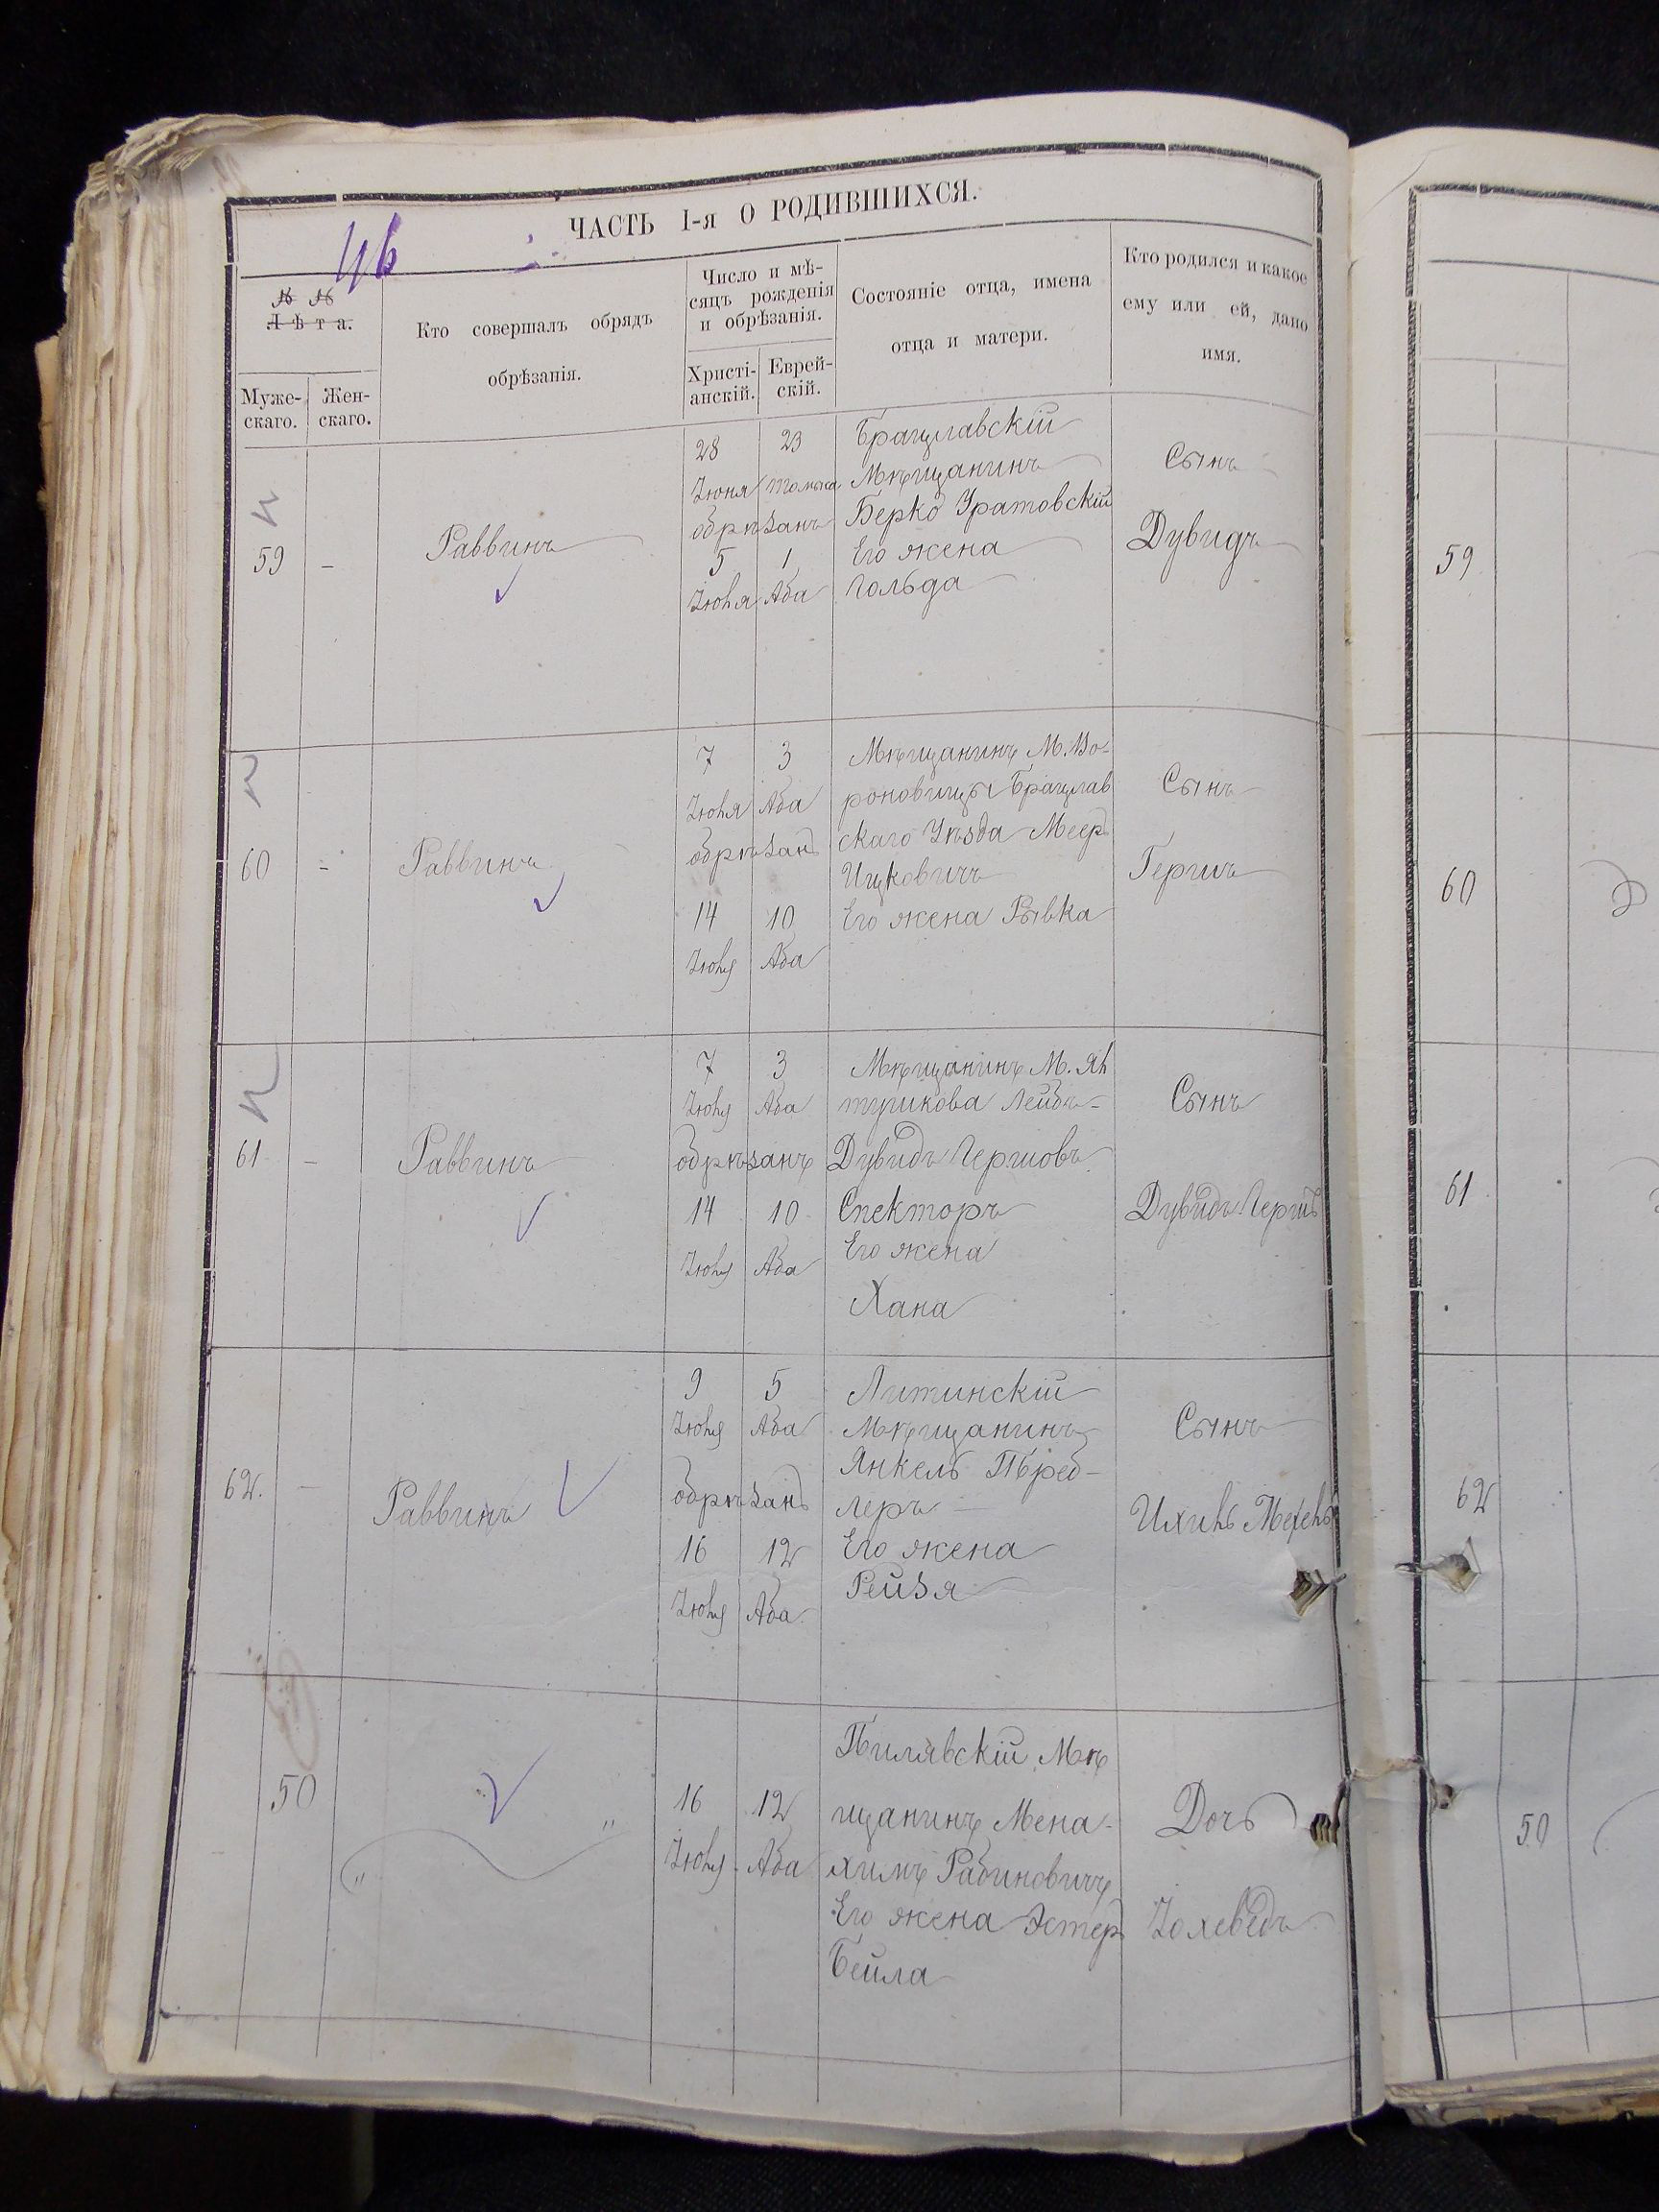 ЧАСТЬ I-я О РОДИВШИХСЯ.
46
№ №
Лѣта.
Муже-
скаго.
Жен-
скаго.
Кто совершалъ обрядъ
обрѣзанія.
Число и мѣ-
сяцъ рожденія
и обрѣзанія.
Христі-
анскій.
Еврей-
скій.
Состояніе отца, имена
отца и матери.
Кто родился и какое
ему или ей, дано
имя.
59
-
Раввинъ
28 23
Іюня
обрѣзанъ
5 1
Іюля Аба
Брацлавскій
Мѣщанинъ
Берко Уратовскій
Его жена
Гольда
Сынъ
Дувидъ
60
-
Раввинъ
7 3
Іюля Аба
обрѣзанъ
14 10
Іюля Аба
Мѣщанинъ М. Во-
роновицы Брацлав
скаго Уѣзда Меер
Ицковичъ
Его жена Рывка
Сынъ
Гершъ
61
-
Раввинъ
7 3
Іюля Аба
обрѣзанъ
14 10
Іюля Аба
Мѣщанинъ М. Ян
тушкова Лейбъ-
Дувидъ Гершовъ
Спекторъ
Его жена
Хана
Сынъ
Дувидъ Гершъ
62.
-
Раввинъ
9 5
Іюля Аба
обрѣзанъ
16 12
Іюля Аба
Литинскій
Мѣщанинъ
Янкель
леръ
Его жена
Рейзя
Сынъ
Ихиль Мехель
50
" "
16 12
Іюля Аба
Пилявскій Мѣ
щанинъ Мена-
химъ Рабиновичъ
Его жена Эстер
Бейла
Дочь
Іохеведъ
59
60
61
62
50